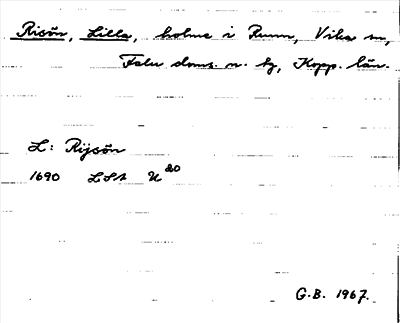 Risön, Lilla, holme i Runn, Vika sn,
Falu doms. n. tg, Kopp. län.
L: Rijsön
1690 LSA U 20
G.B. 1967.